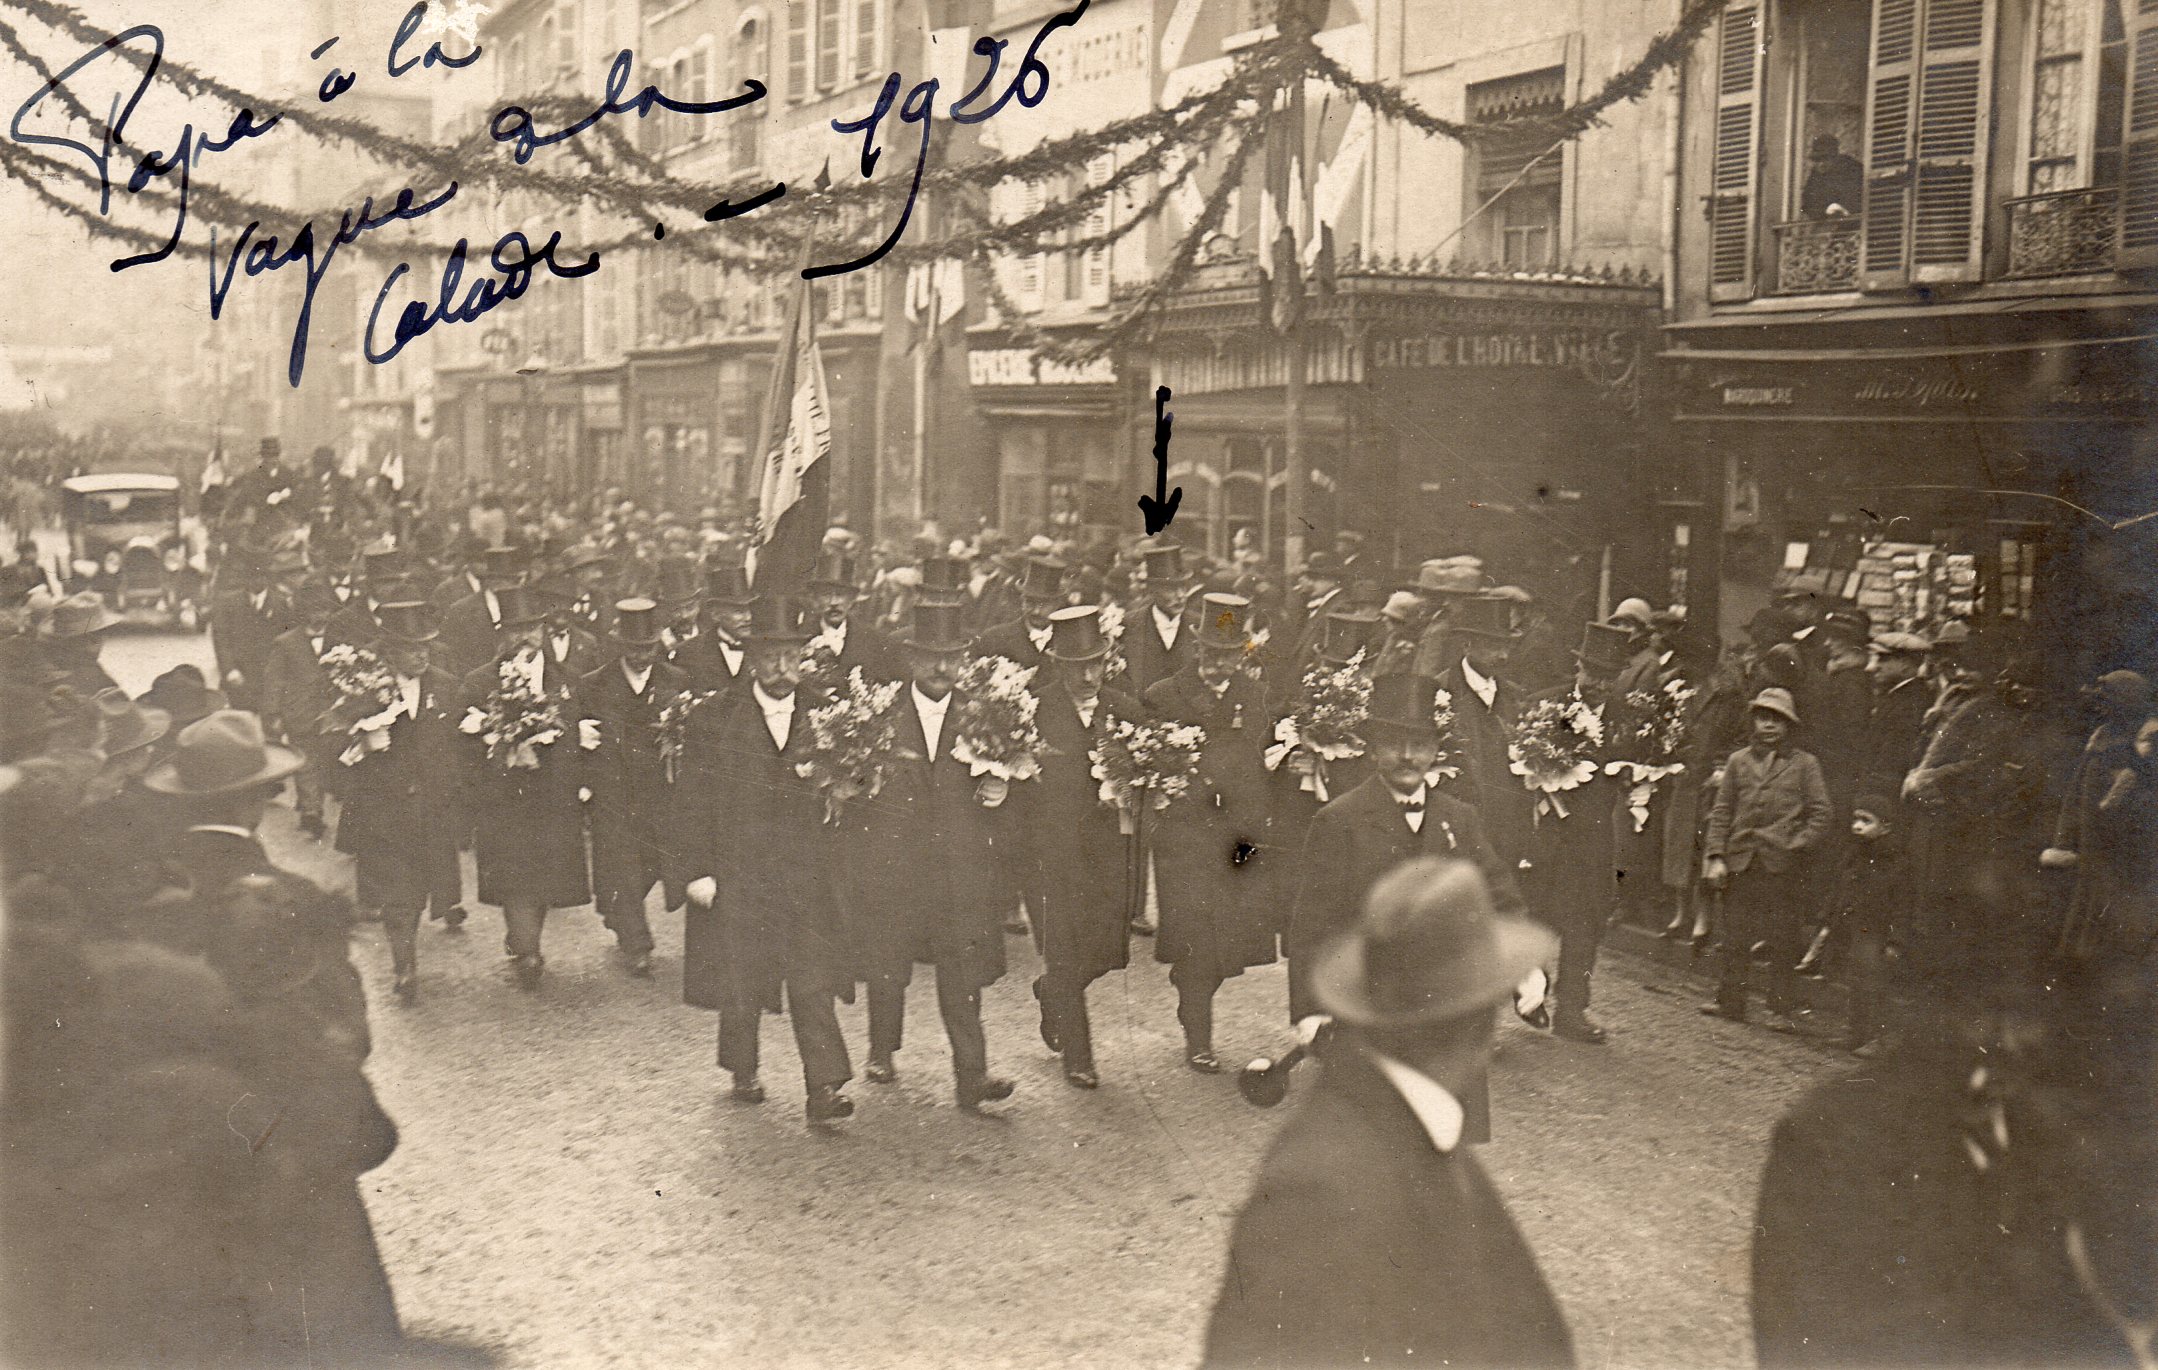 Papa à la
vague à la
Calade. - 1926
MODERNE
EPICERIE MODERNE
CAFE DE L'HOTEL VILLE
MAROQUINERIE